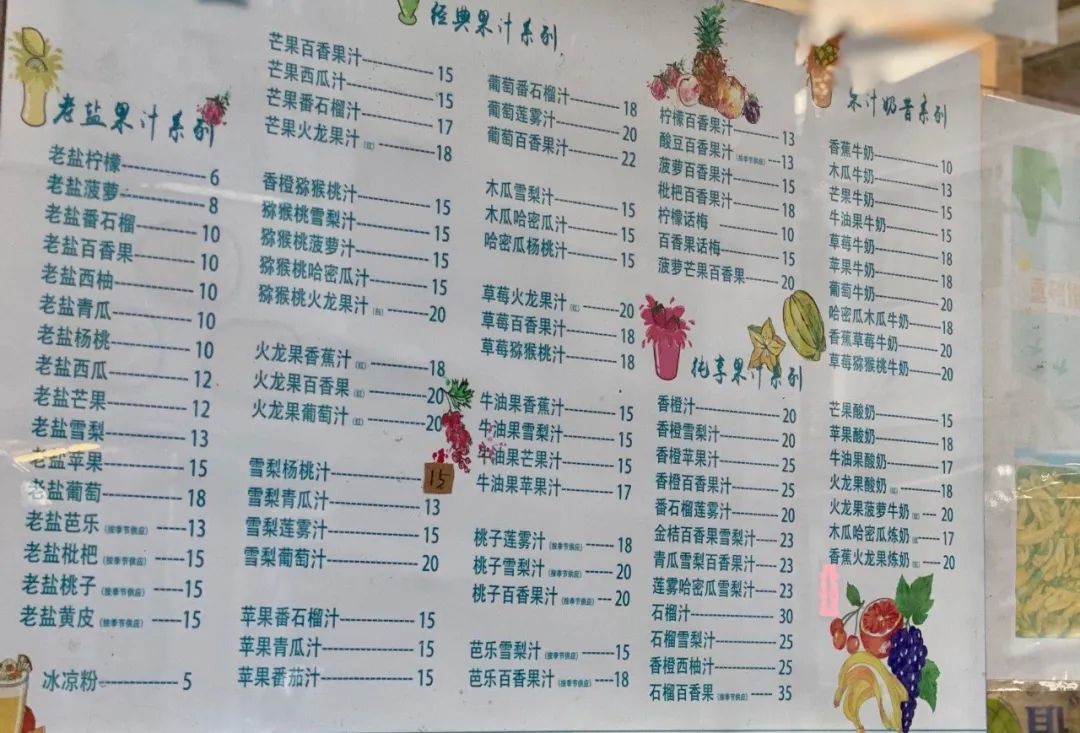 老盐果汁系列
老盐柠檬 6
老盐菠萝 8
老盐番石榴 10
老盐百香果 10
老盐西柚 10
老盐青瓜 10
老盐杨桃 10
老盐西瓜 12
老盐芒果 12
老盐雪梨 13
老盐苹果 15
老盐葡萄 18
老盐芭乐(按季节供应) 13
老盐枇杷(按季节供应) 15
老盐桃子(按季节供应) 15
老盐黄皮(按季节供应) 15
冰凉粉 5
经典果汁系列
芒果百香果汁 15
芒果西瓜汁 15
芒果番石榴汁 17
芒果火龙果汁(红) 18
香橙猕猴桃汁 15
猕猴桃雪梨汁 15
猕猴桃菠萝汁 15
猕猴桃哈密瓜汁 15
猕猴桃火龙果汁 20
火龙果香蕉汁(红) 18
火龙果百香果(红) 20
火龙果葡萄汁(红) 20
雪梨杨桃汁 15
雪梨青瓜汁 13
雪梨莲雾汁 15
雪梨葡萄汁 20
苹果番石榴汁 15
苹果青瓜汁 15
苹果番茄汁 15
葡萄番石榴汁 18
葡萄莲雾汁 20
葡萄百香果汁 22
木瓜雪梨汁 15
木瓜哈密瓜汁 15
哈密瓜杨桃汁 15
草莓火龙果汁(红) 20
草莓百香果汁 18
草莓猕猴桃汁 18
牛油果香蕉汁 15
牛油果雪梨汁 15
牛油果芒果汁 15
牛油果苹果汁 17
桃子莲雾汁(按季节供应) 18
桃子雪梨汁(按季节供应) 20
桃子百香果汁(按季节供应) 20
芭乐雪梨汁(按季节供应) 15
芭乐百香果汁(按季节供应) 18
柠檬百香果汁 13
酸豆百香果汁(按季节供应) 13
菠萝百香果汁 15
枇杷百香果汁 18
柠檬话梅 10
百香果话梅 15
菠萝芒果百香果 20
纯享果汁系列
香橙汁 20
香橙雪梨汁 20
香橙苹果汁 25
香橙百香果汁 25
番石榴莲雾汁 20
金桔百香果雪梨汁 23
青瓜雪梨百香果汁 23
莲雾哈密瓜雪梨汁 23
石榴汁 30
石榴雪梨汁 25
香橙西柚汁 25
石榴百香果(按季节供应) 35
果汁奶昔系列
香蕉牛奶 10
木瓜牛奶 13
芒果牛奶 15
牛油果牛奶 15
草莓牛奶 18
苹果牛奶 18
葡萄牛奶 20
哈密瓜木瓜牛奶 18
香蕉草莓牛奶 20
草莓猕猴桃牛奶 20
芒果酸奶 15
苹果酸奶 18
牛油果酸奶 17
火龙果酸奶(红) 18
火龙果菠萝牛奶 20
木瓜哈密瓜炼奶 17
香蕉火龙果炼奶 20